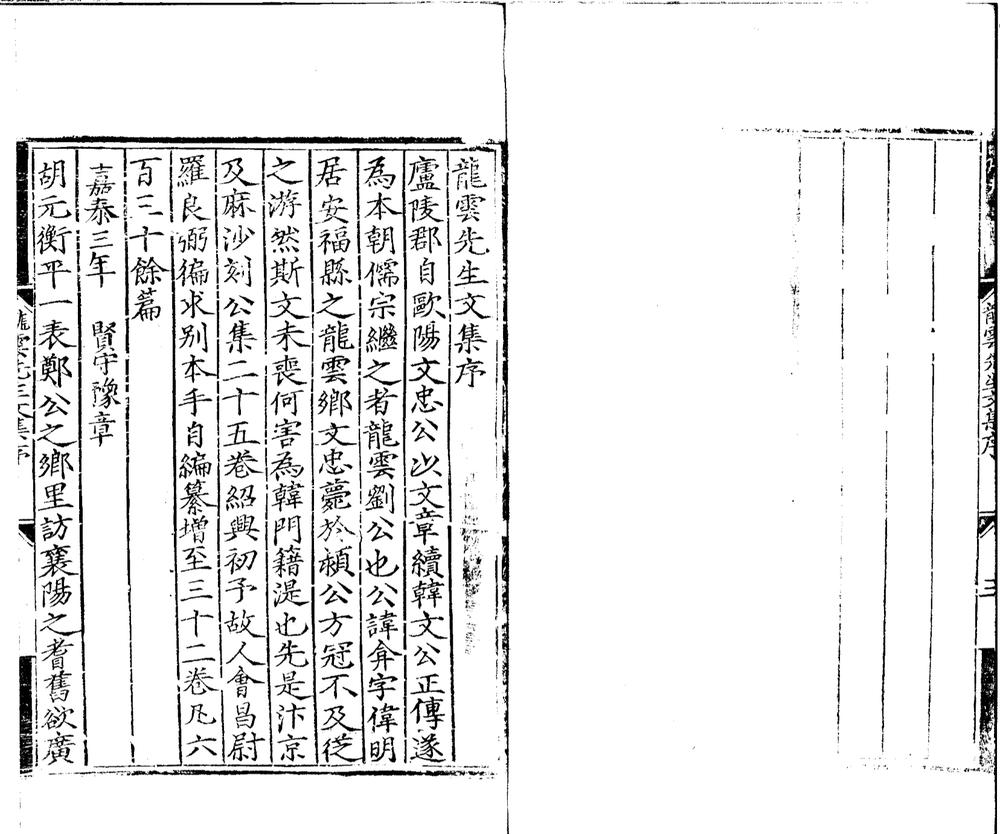 龍雲先生文集序
三
龍雲先生文集序
廬陵郡自歐陽文忠公以文章續韓文公正傳遂
為本朝儒宗繼之者龍雲劉公也公諱弇字偉明
居安福縣之龍雲鄉文忠薨於潁公方冠不及從
之游然斯文未喪何害為韓門籍湜也先是汴京
及麻沙刻公集二十五卷紹興初予故人會昌尉
羅良弼徧求别本手自編纂增至三十二卷凡六
百三十餘篇
嘉泰三年　賢守豫章
胡元衡平一表鄭公之鄉里訪襄陽之耆舊欲廣
龍雲先生文集序